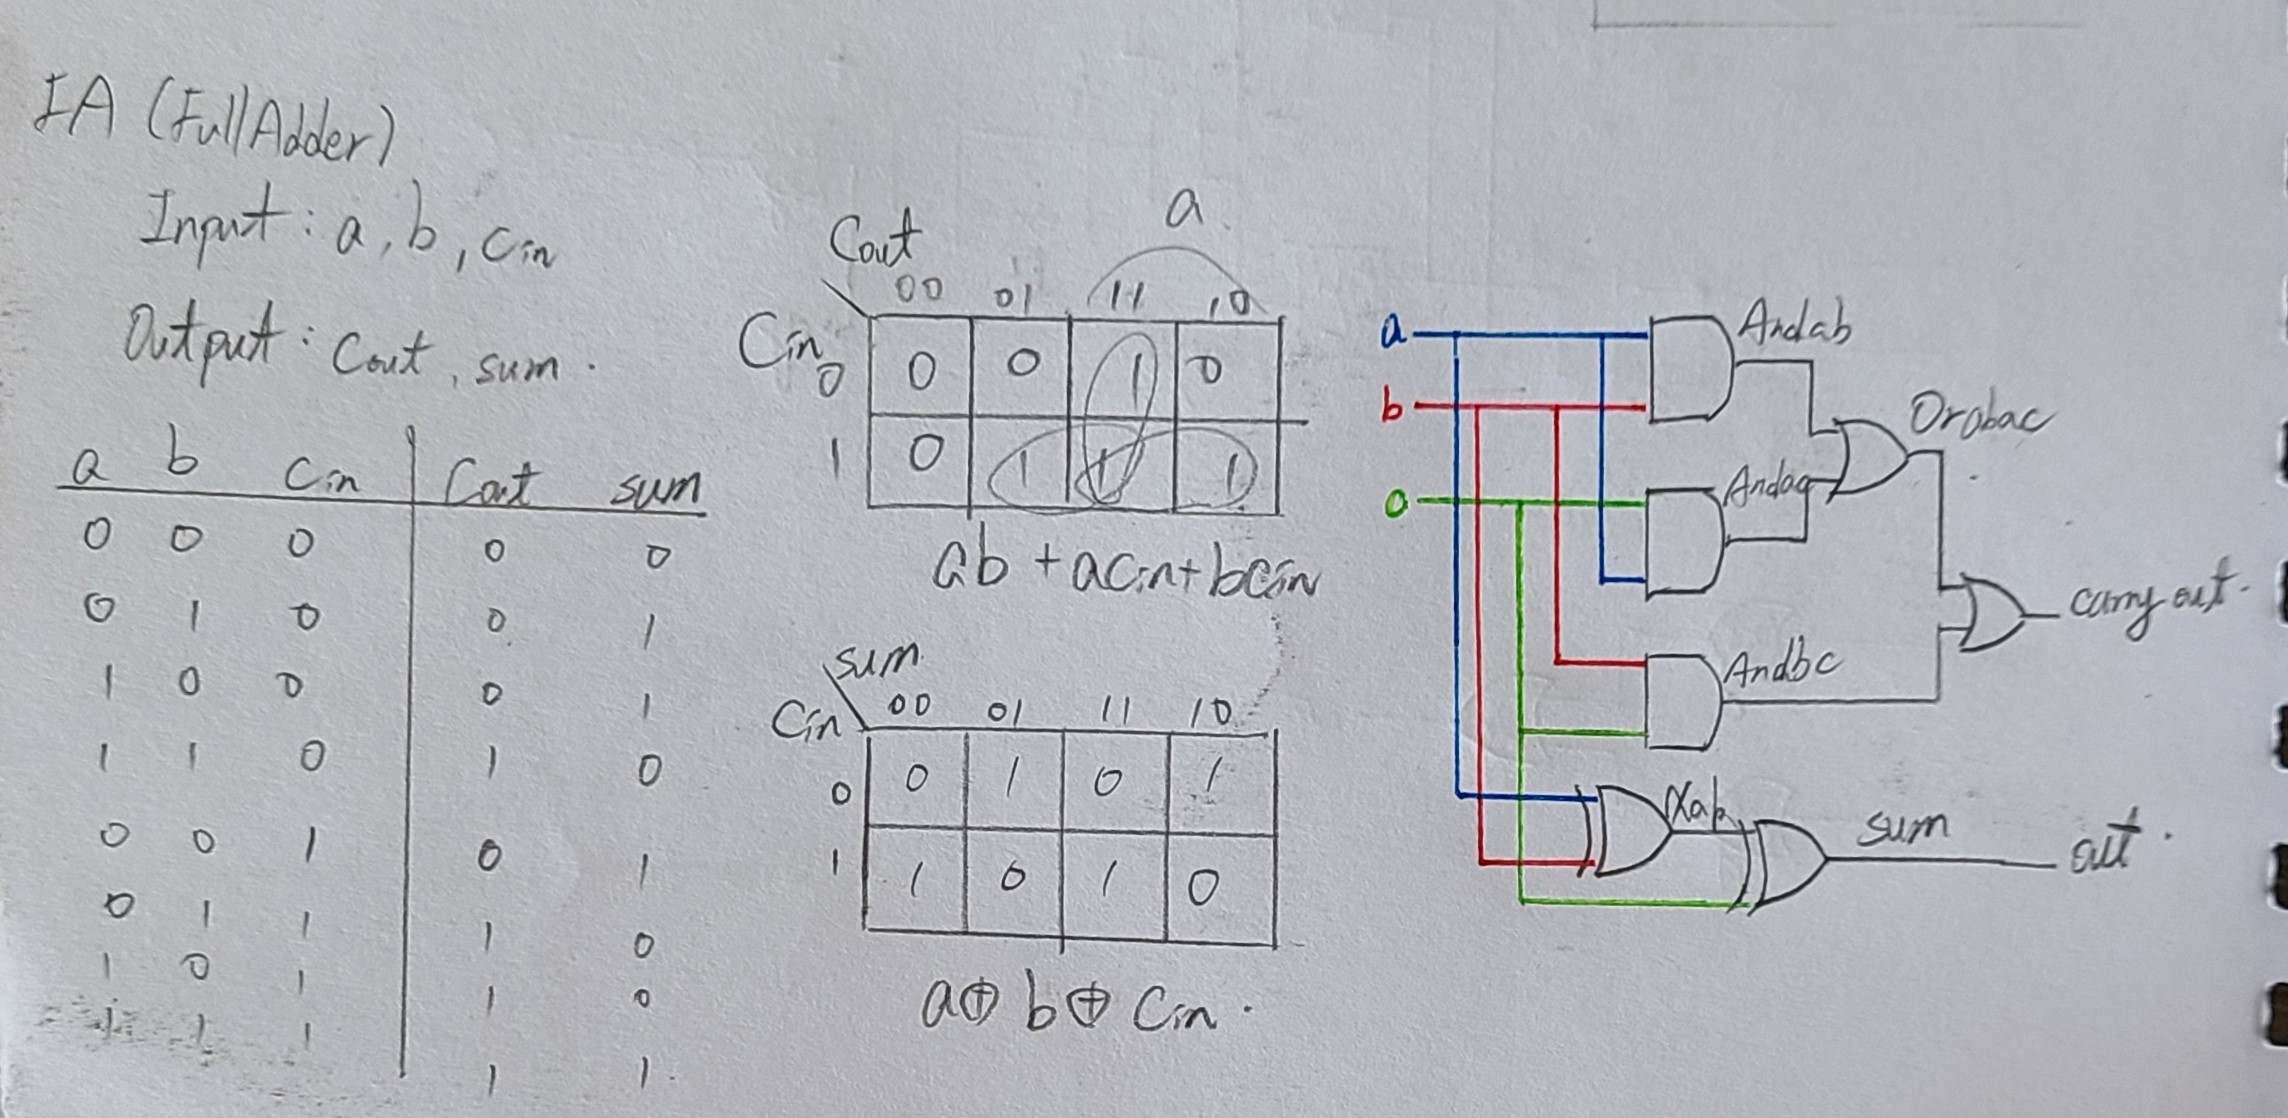 FA (FullAdder)
Input : a, b, Cin
Output : Cout, sum.
a b Cin Cout sum
0 0 0 0 0
0 1 0 0 1
1 0 0 0 1
1 1 0 1 0
0 0 1 0 1
0 1 1 1 0
1 0 1 1 0
1 1 1 1 1
a
Cout
00 01 11 10
Cin
0 0 0 1 0
1 0 1 1 1
ab + acin + bcin
sum
Cin 00 01 11 10
0 0 1 0 1
1 1 0 1 0
a⊕ b⊕ Cin.
a
b
Andab
Orabac
carry out.
Andbc
Xab
sum
out.